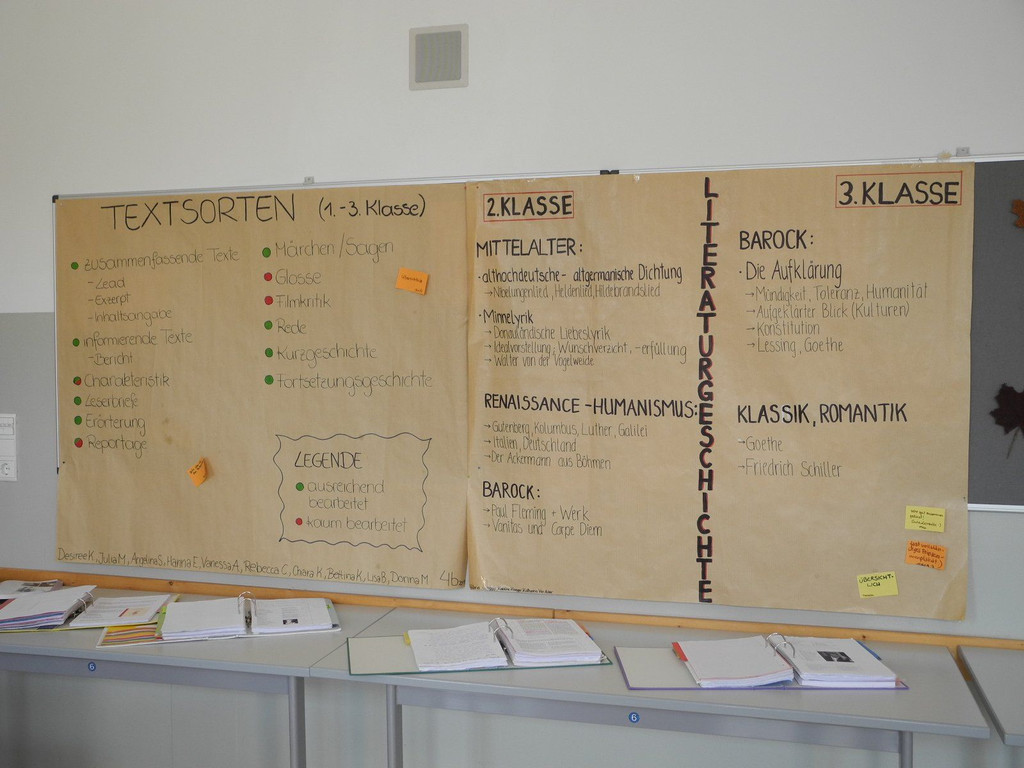 TEXTSORTEN (1.-3. Klasse)
zusammenfassende Texte
- Lead
- Exzerpt
- Inhaltsangabe
informierende Texte
- Bericht
Charakteristik
Leserbriefe
Erörterung
Reportage
Märchen/Sagen
Glosse
Filmkritik
Rede
Kurzgeschichte
Fortsetzungsgeschichte
LEGENDE
ausreichend
bearbeitet
kaum bearbeitet
Desiree K., Julia M., Angelina S., Hanna E., Vanessa A., Rebecca C., Chiara K., Bettina K., Lisa B., Donna M.
2. KLASSE
MITTELALTER:
· althochdeutsche- altgermanische Dichtung
→ Nibelungenlied, Heldenlied, Hildebrandslied
· Minnelyrik
→ Donauländische Liebeslyrik
→ Idealvorstellung, Wunschverzicht, -erfüllung
→ Walter von der Vogelweide
RENAISSANCE - HUMANISMUS:
→ Gutenberg, Kolumbus, Luther, Galilei
→ Italien, Deutschland
→ Der Ackermann aus Böhmen
BAROCK:
→ Paul Fleming + Werk
→ Vanitas und Carpe Diem
LITERATURGESCHICHTE
3. KLASSE
BAROCK:
· Die Aufklärung
→ Mündigkeit, Toleranz, Humanität
→ Aufgeklärter Blick (Kulturen)
→ Konstitution
→ Lessing, Goethe
KLASSIK, ROMANTIK
→ Goethe
→ Friedrich Schiller
ÜBERSICHT-
LICH
6
6